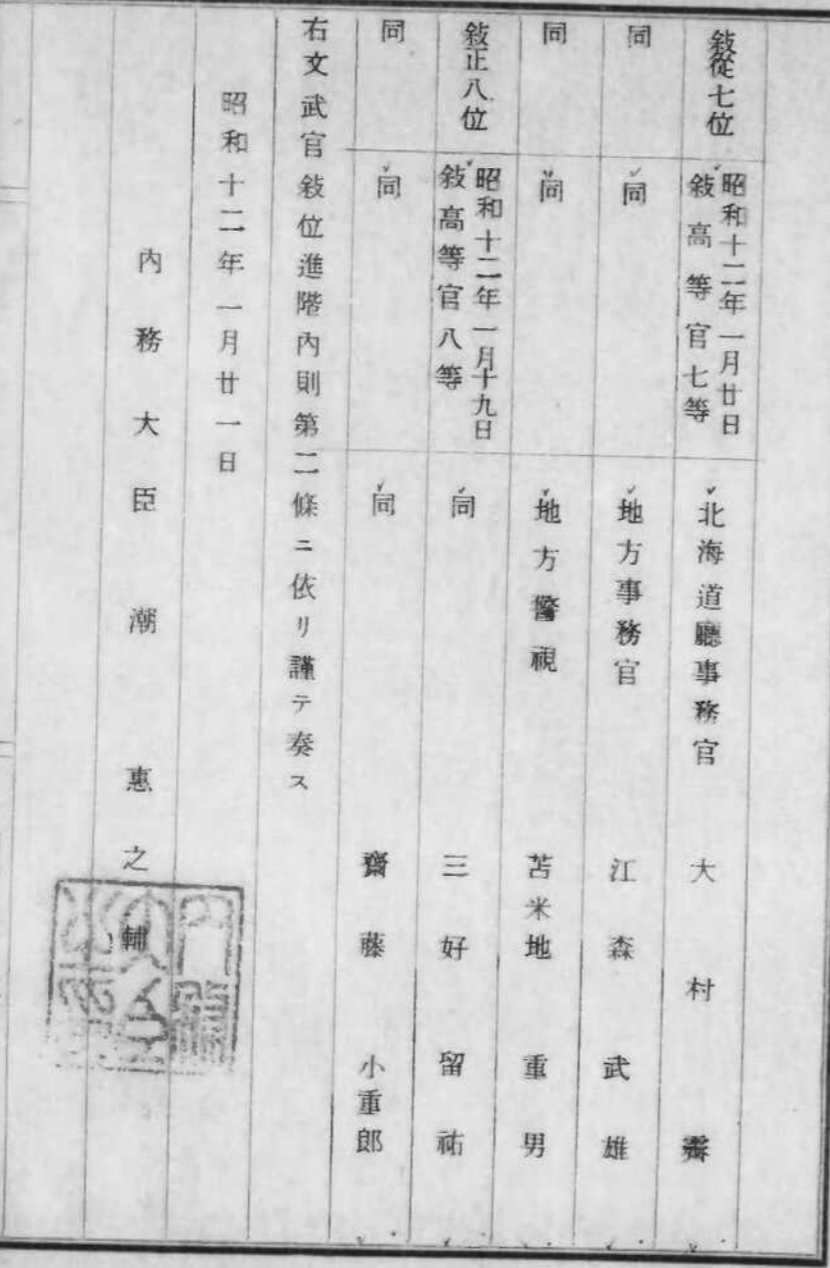 敍從七位 昭和十二年一月廿日敍高等官七等 北海道廳事務官 大村
同 同 地方事務官 江森武雄
同 同 地方警視 苫米地重男
敍正八位 昭和十二年一月十九日敍高等官八等 同 三好留祐
同 同 同 齋藤小重郎
右文武官敍位進階內則第二條ニ依リ謹テ奏ス
昭和十二年一月廿一日
內務大臣潮惠之輔